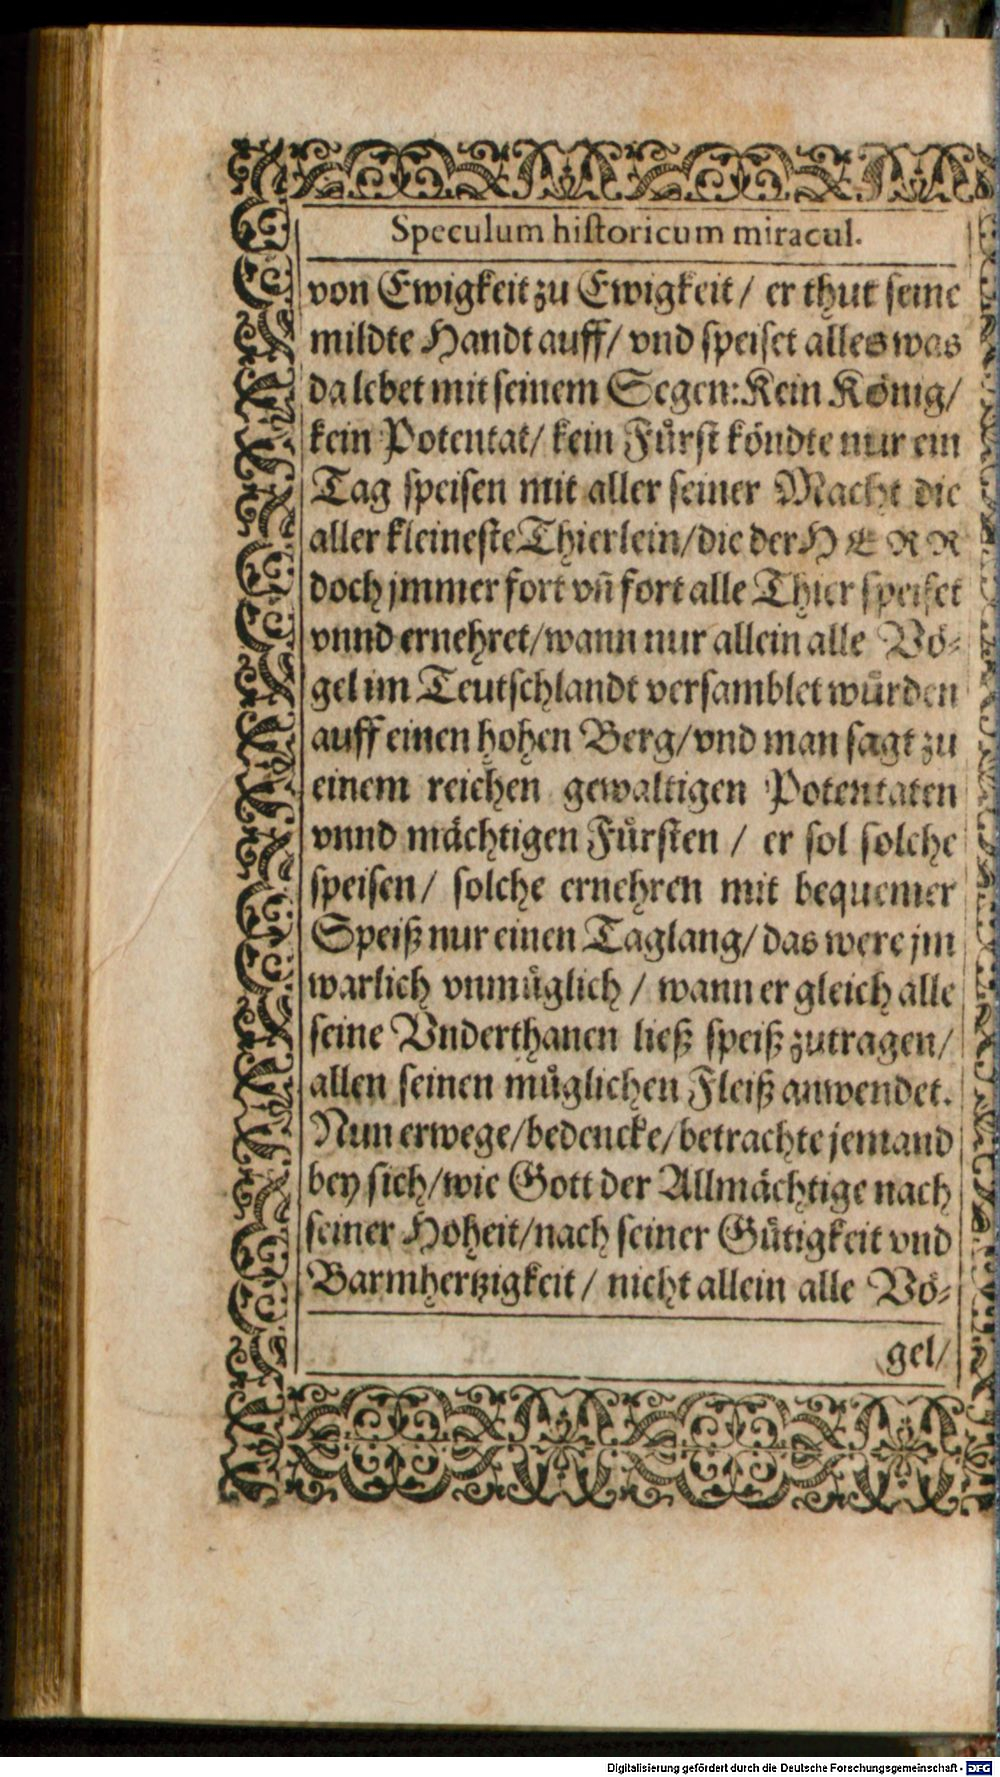 Speculum historicum miracul.
von Ewigkeit zu Ewigkeit / er thut seine
mildte Handt auff / vnd speiset alles was
da lebet mit seinem Segen: Kein König /
kein Potentat / kein Fuͤrst köndte nur ein
Tag speisen mit aller seiner Macht die
aller kleineste Thierlein / die der HERR
doch jmmer fort vn̄ fort alle Thier speiset
vnnd ernehret / wann nur allein alle Vö-
gel im Teutschlandt versamblet wuͤrden
auff einen hohen Berg / vnd man sagt zu
einem reichen gewaltigen Potentaten
vnnd mächtigen Fuͤrsten / er sol solche
speisen / solche ernehren mit bequemer
Speiß nur einen Taglang / das were jm
warlich vnmuͤglich / wann er gleich alle
seine Vnderthanen ließ speiß zutragen /
allen seinen muͤglichen Fleiß anwendet.
Nun erwege / bedencke / betrachte jemand
bey sich / wie Gott der Allmächtige nach
seiner Hoheit / nach seiner Guͤtigkeit vnd
Barmhertzigkeit / nicht allein alle Vö-
gel /
Digitalisierung gefördert durch die Deutsche Forschungsgemeinschaft - DFG